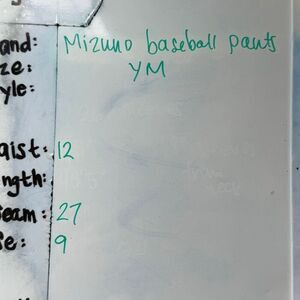 and: Mizuno baseball pants
ze: YM
yle:
aist: 12
ngth:
eam: 27
se: 9